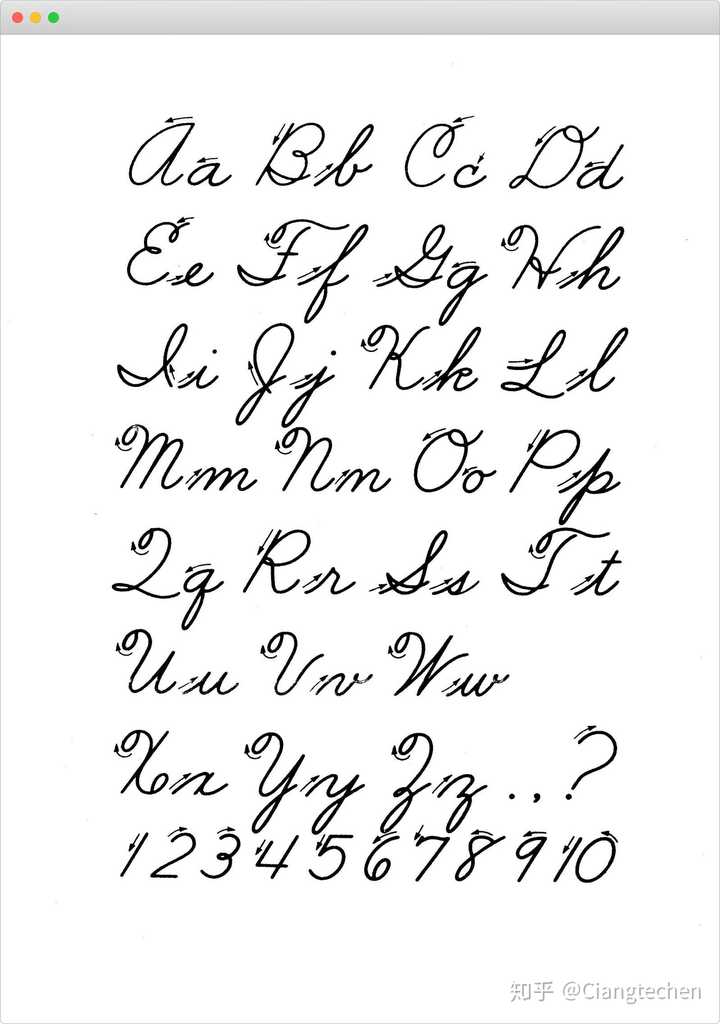 Aa Bb Cc Dd
Ee Ff Gg Hh
Ii Jj Kk Ll
Mm Nn Oo Pp
Qq Rr Ss Tt
Uu Vv Ww
Xx Yy Zz . , ?
1 2 3 4 5 6 7 8 9 10
知乎 @Ciangtechen